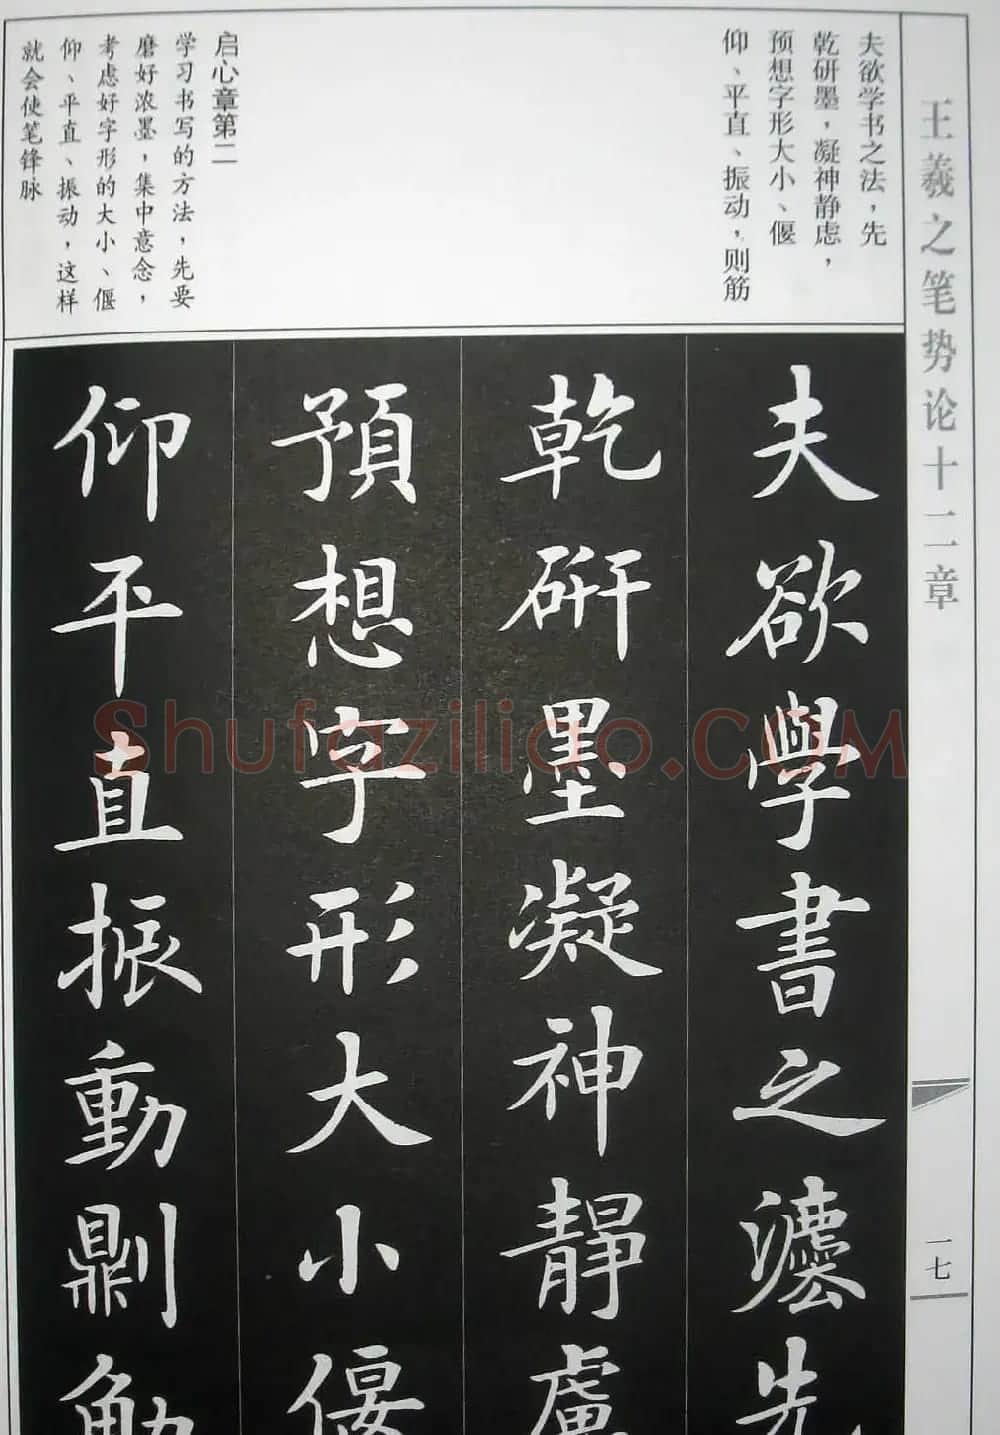 王羲之笔势论十二章
一七
夫欲学书之法，先
乾研墨，凝神静虑，
预想字形大小、偃
仰、平直、振动，则筋
启心章第二
学习书写的方法，先要
磨好浓墨，集中意念，
考虑好字形的大小、偃
仰、平直、振动，这样
就会使笔锋脉
夫欲學書之灋先
乾研墨凝神靜慮
預想字形大小偃
仰平直振動鼎刂
Shufaziliao.COM